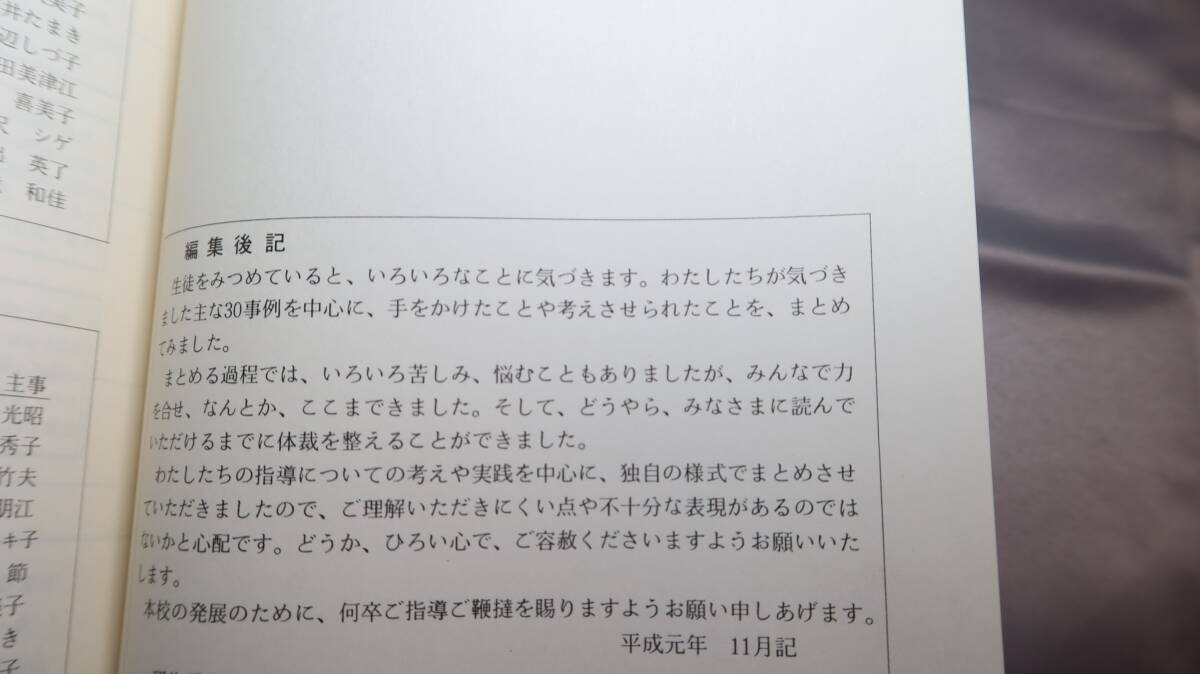 井たまき
辺しづ子
田美津江
喜美子
シゲ
英了
和佳
主事
光昭
秀子
竹夫
朋江
キ子
節
子
き
子
編集後記
生徒をみつめていると、いろいろなことに気づきます。わたしたちが気づき
ました主な30事例を中心に、手をかけたことや考えさせられたことを、まとめ
てみました。
まとめる過程では、いろいろ苦しみ、悩むこともありましたが、みんなで力
を合せ、なんとか、ここまできました。そして、どうやら、みなさまに読んで
いただけるまでに体裁を整えることができました。
わたしたちの指導についての考えや実践を中心に、独自の様式でまとめさせ
ていただきましたので、ご理解いただきにくい点や不十分な表現があるのでは
ないかと心配です。どうか、ひろい心で、ご容赦くださいますようお願いいた
します。
本校の発展のために、何卒ご指導ご鞭撻を賜りますようお願い申しあげます。
平成元年 11月記